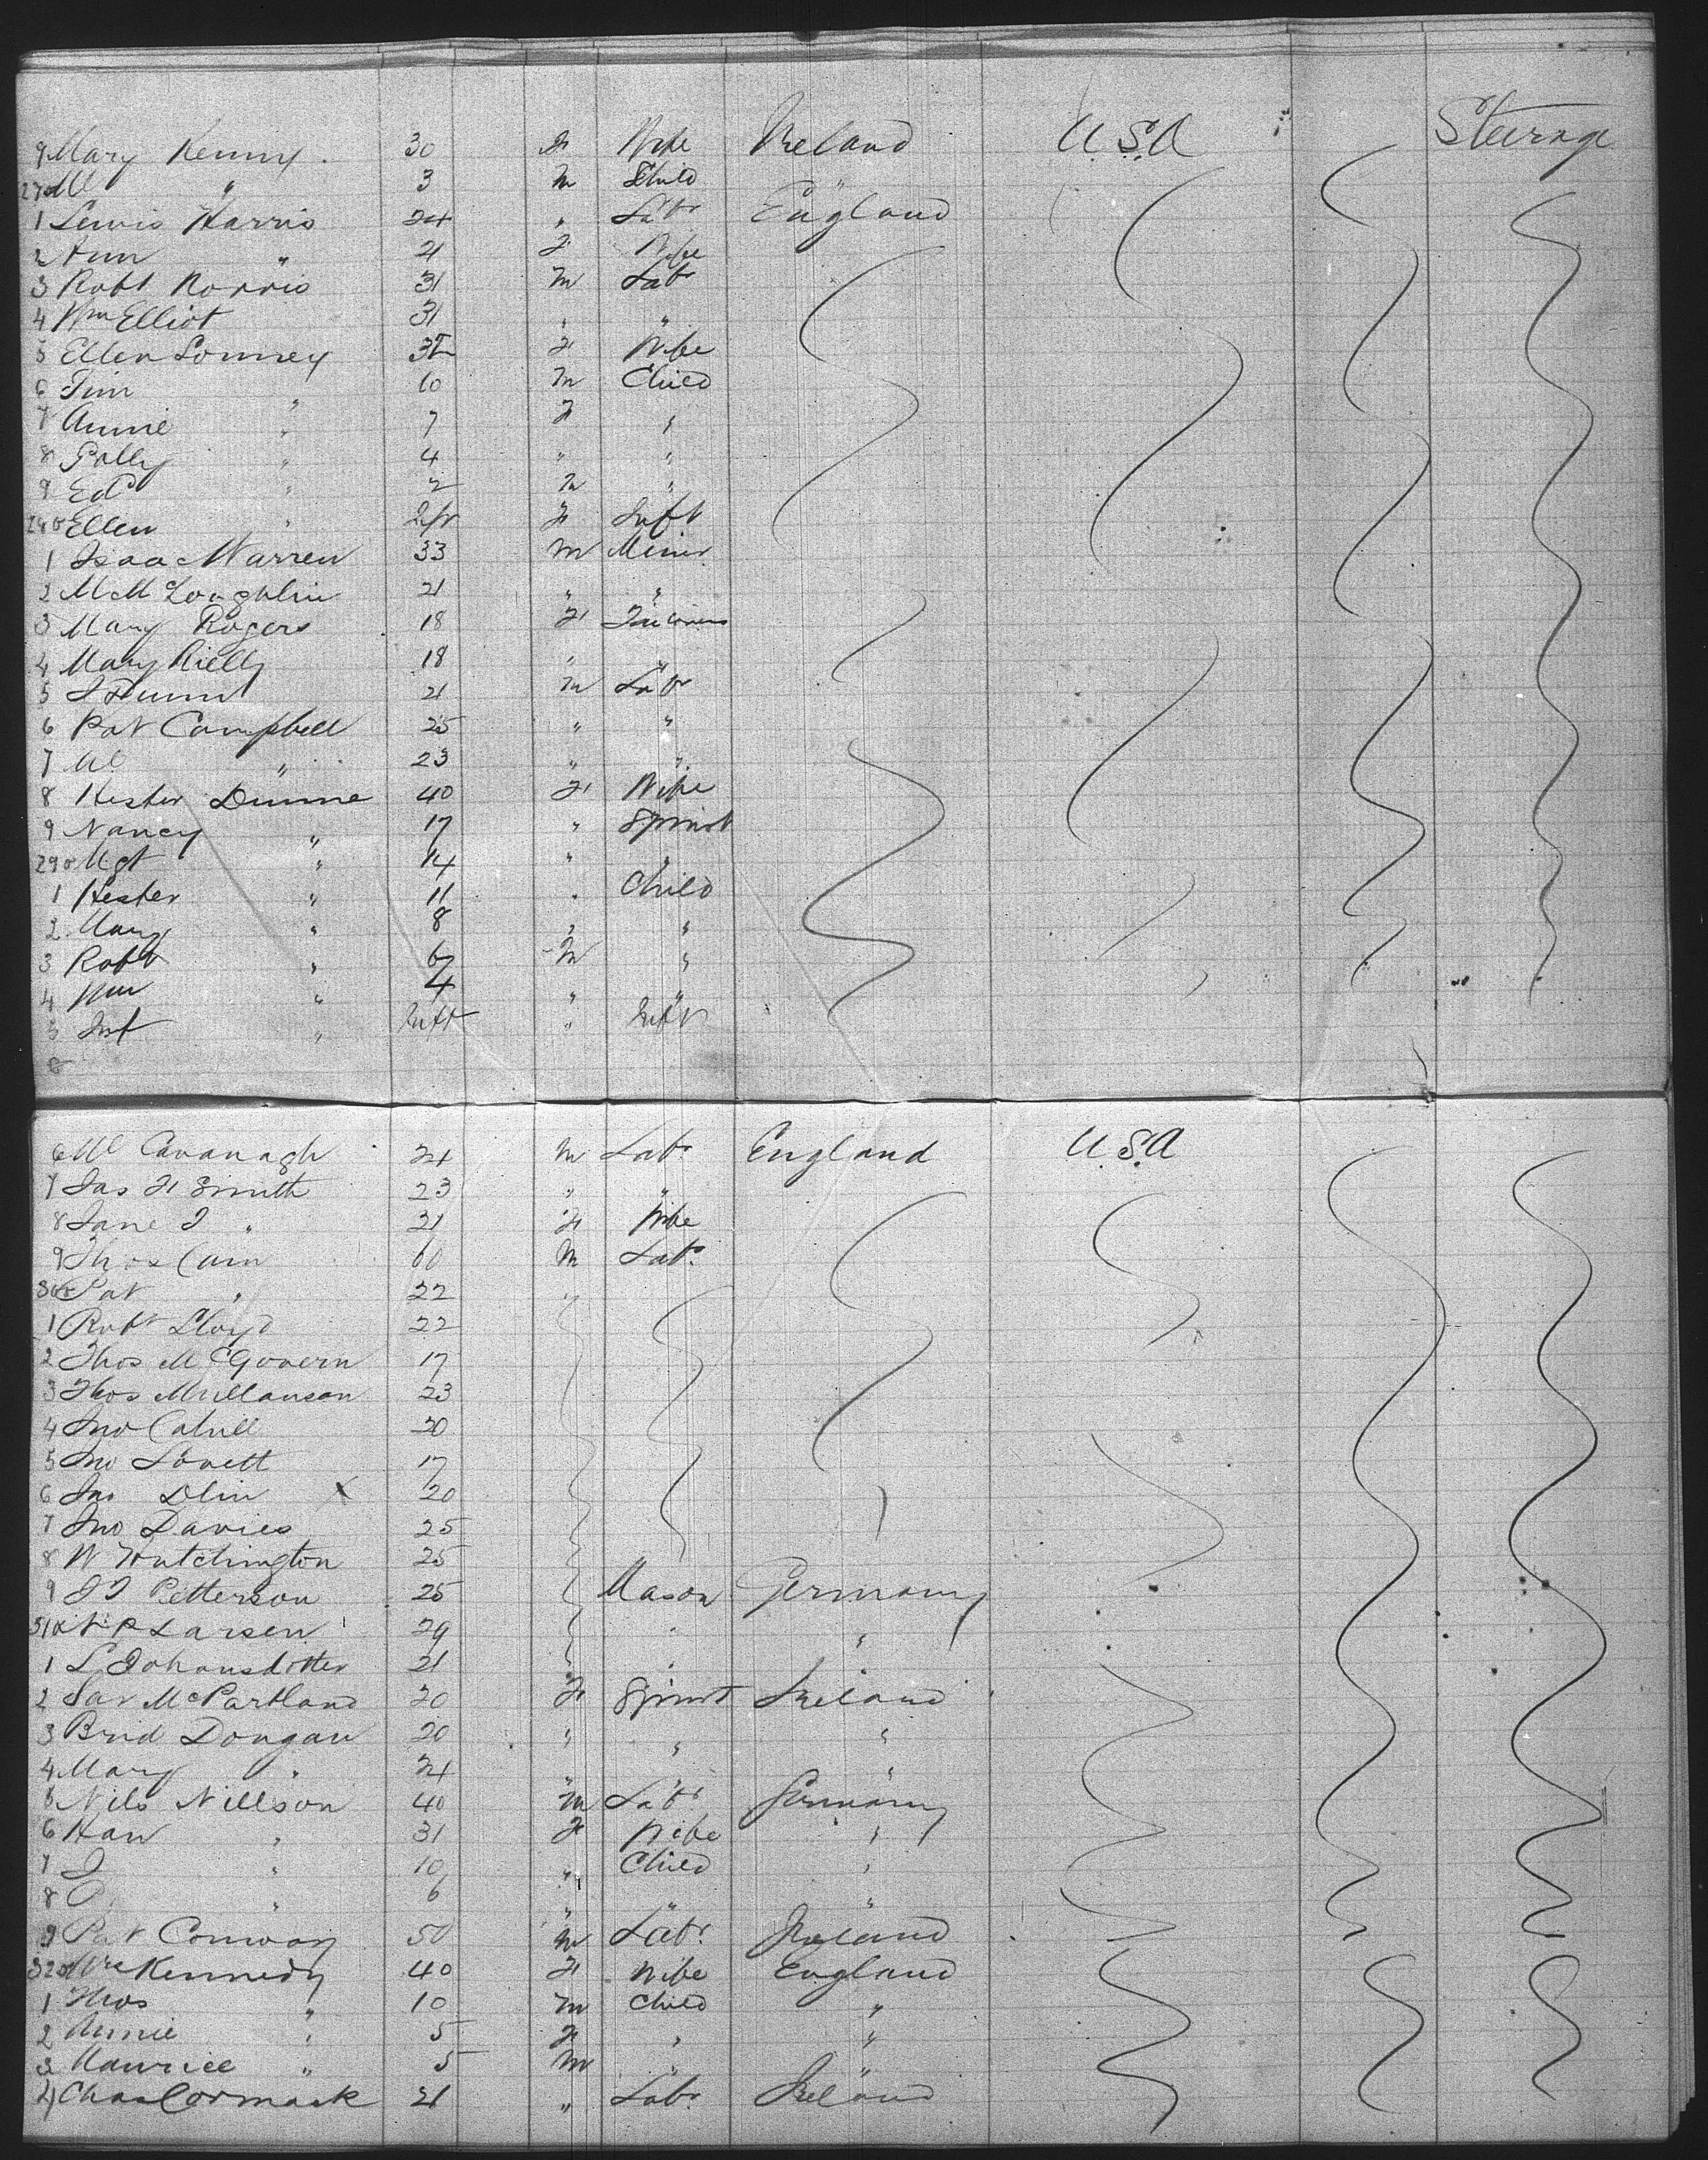 9 Mary Kenny. 30 F Wife Ireland U.S.A Steerage
27 " 3 m Child "
1 Lewis Harris 24 " Labr England
2 Ann " 21 F Wife
3 Robt Norris 31 m Labr
4 Wm Elliot 31 " "
5 Ellen 32 F Wife
6 Tim " 10 m Child
7 Annie " 7 F "
8 Polly " 4 " "
9 Ed " 2 m "
280 Ellen " F Inft
1 Isaac Warren 33 m Miner
2 M McLoughlin 21 " "
3 Mary Rogers 18 F
4 Mary Rielly 18 " "
5 21 m Labr
6 Pat Campbell 25 " "
7 " 23 " "
8 Hester Dunne 40 F Wife
9 Nancy " 17 " Spinst
290 Mgt " 14 " "
1 Hester " 11 " Child
2 Mary " 8 " "
3 Robt " 6 m "
4 Wm " 4 " "
5 Inf " Inft " Inft
6
6 Cavanagh 24 m Labr England U.S.A
7 Jas H Smith 23 " "
8 Jane J " 21 F Wife
9 Thos Cain 60 m Labr
300 Pat " 22 "
1 Robt Lloyd 22
2 Thos McGovern 17
3 Thos 23
4 Jno Cahill 20
5 Jno Lovett 17
6 Jno X 20
7 Jno Davies 25
8 W 25
9 Petterson 25 Mason Germany
310 P Larsen 29 " "
1 L Johansdotter 21 "
2 McPartland 20 F Spinst Ireland
3 Brid Dongan 20 " " "
4 Mary " 24 " " "
5 Nils Nillson 40 m Labr Germany
6 Han " 31 F Wife "
7 " 10 " Child "
8 " 6 " " "
9 Pat Conway 50 m Labr Ireland
320 Kennedy 40 F Wife England
1 Thos " 10 m Child "
2 Annie " 5 F " "
3 Maurice " 5 m " "
4 Chas Cormack 21 " Labr Ireland